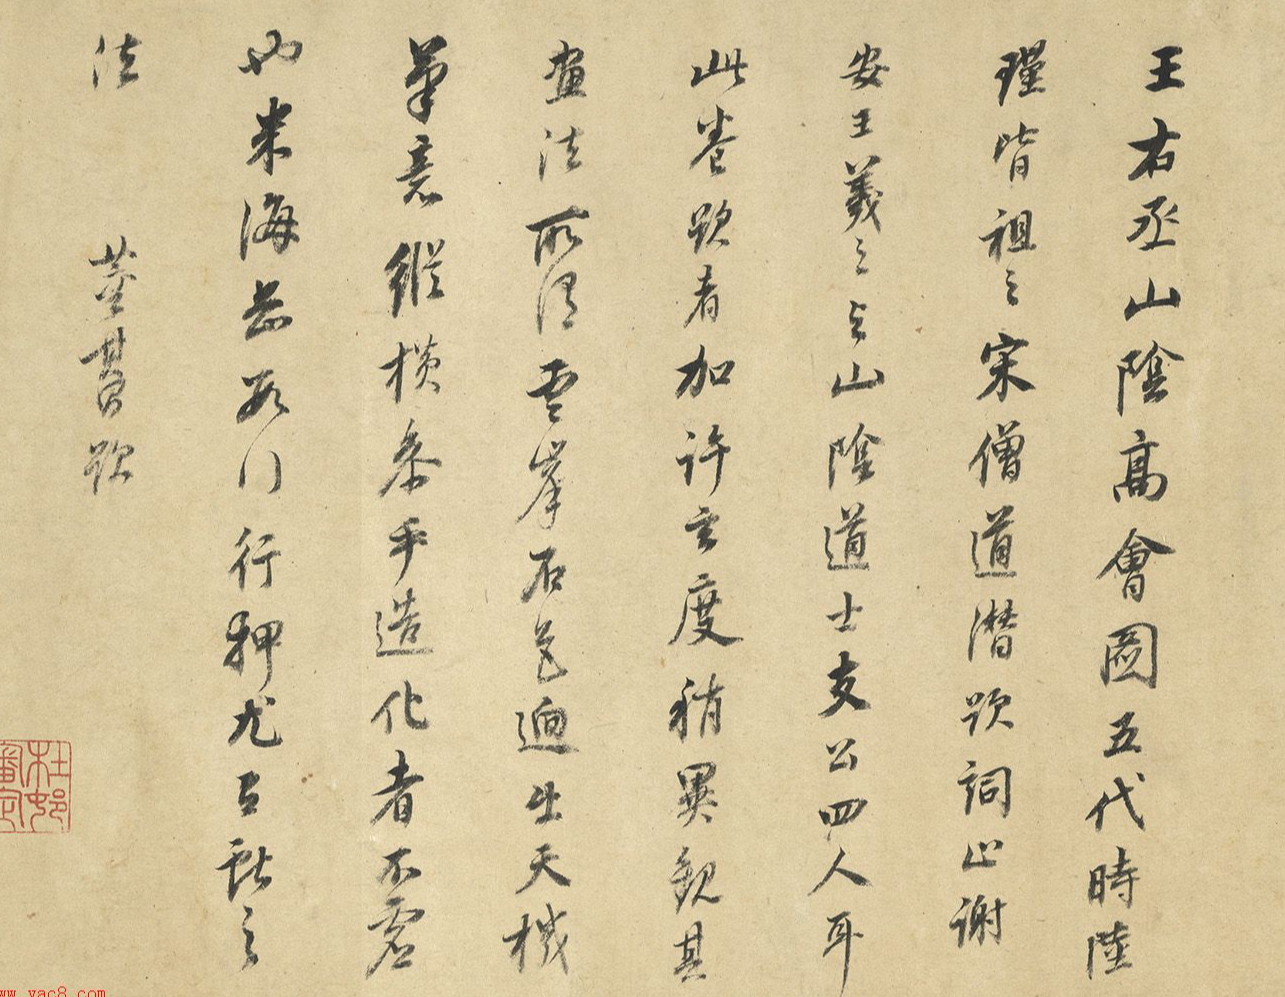 王右丞山陰高會圖五代時陸
瑾皆祖之宋僧道潛跋詞止謝
安王羲之与山陰道士支公四人耳
此卷跋者加許玄度稍異觀其
畫法所謂雲峯石色迥出天機
筆意縱橫參乎造化者不虛
也米海岳數行行押尤獻之
法 董其昌跋
杜邨
ww.yac8.com